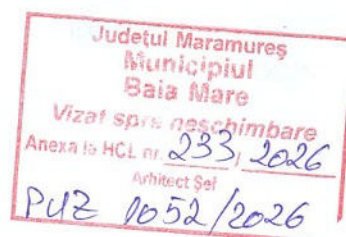 Județul Maramureș
Municipiul
Baia Mare
Vizat spre neschimbare
Anexa la HCL nr. 233, 2026
Arhitect Șef
PUZ 1052/2026